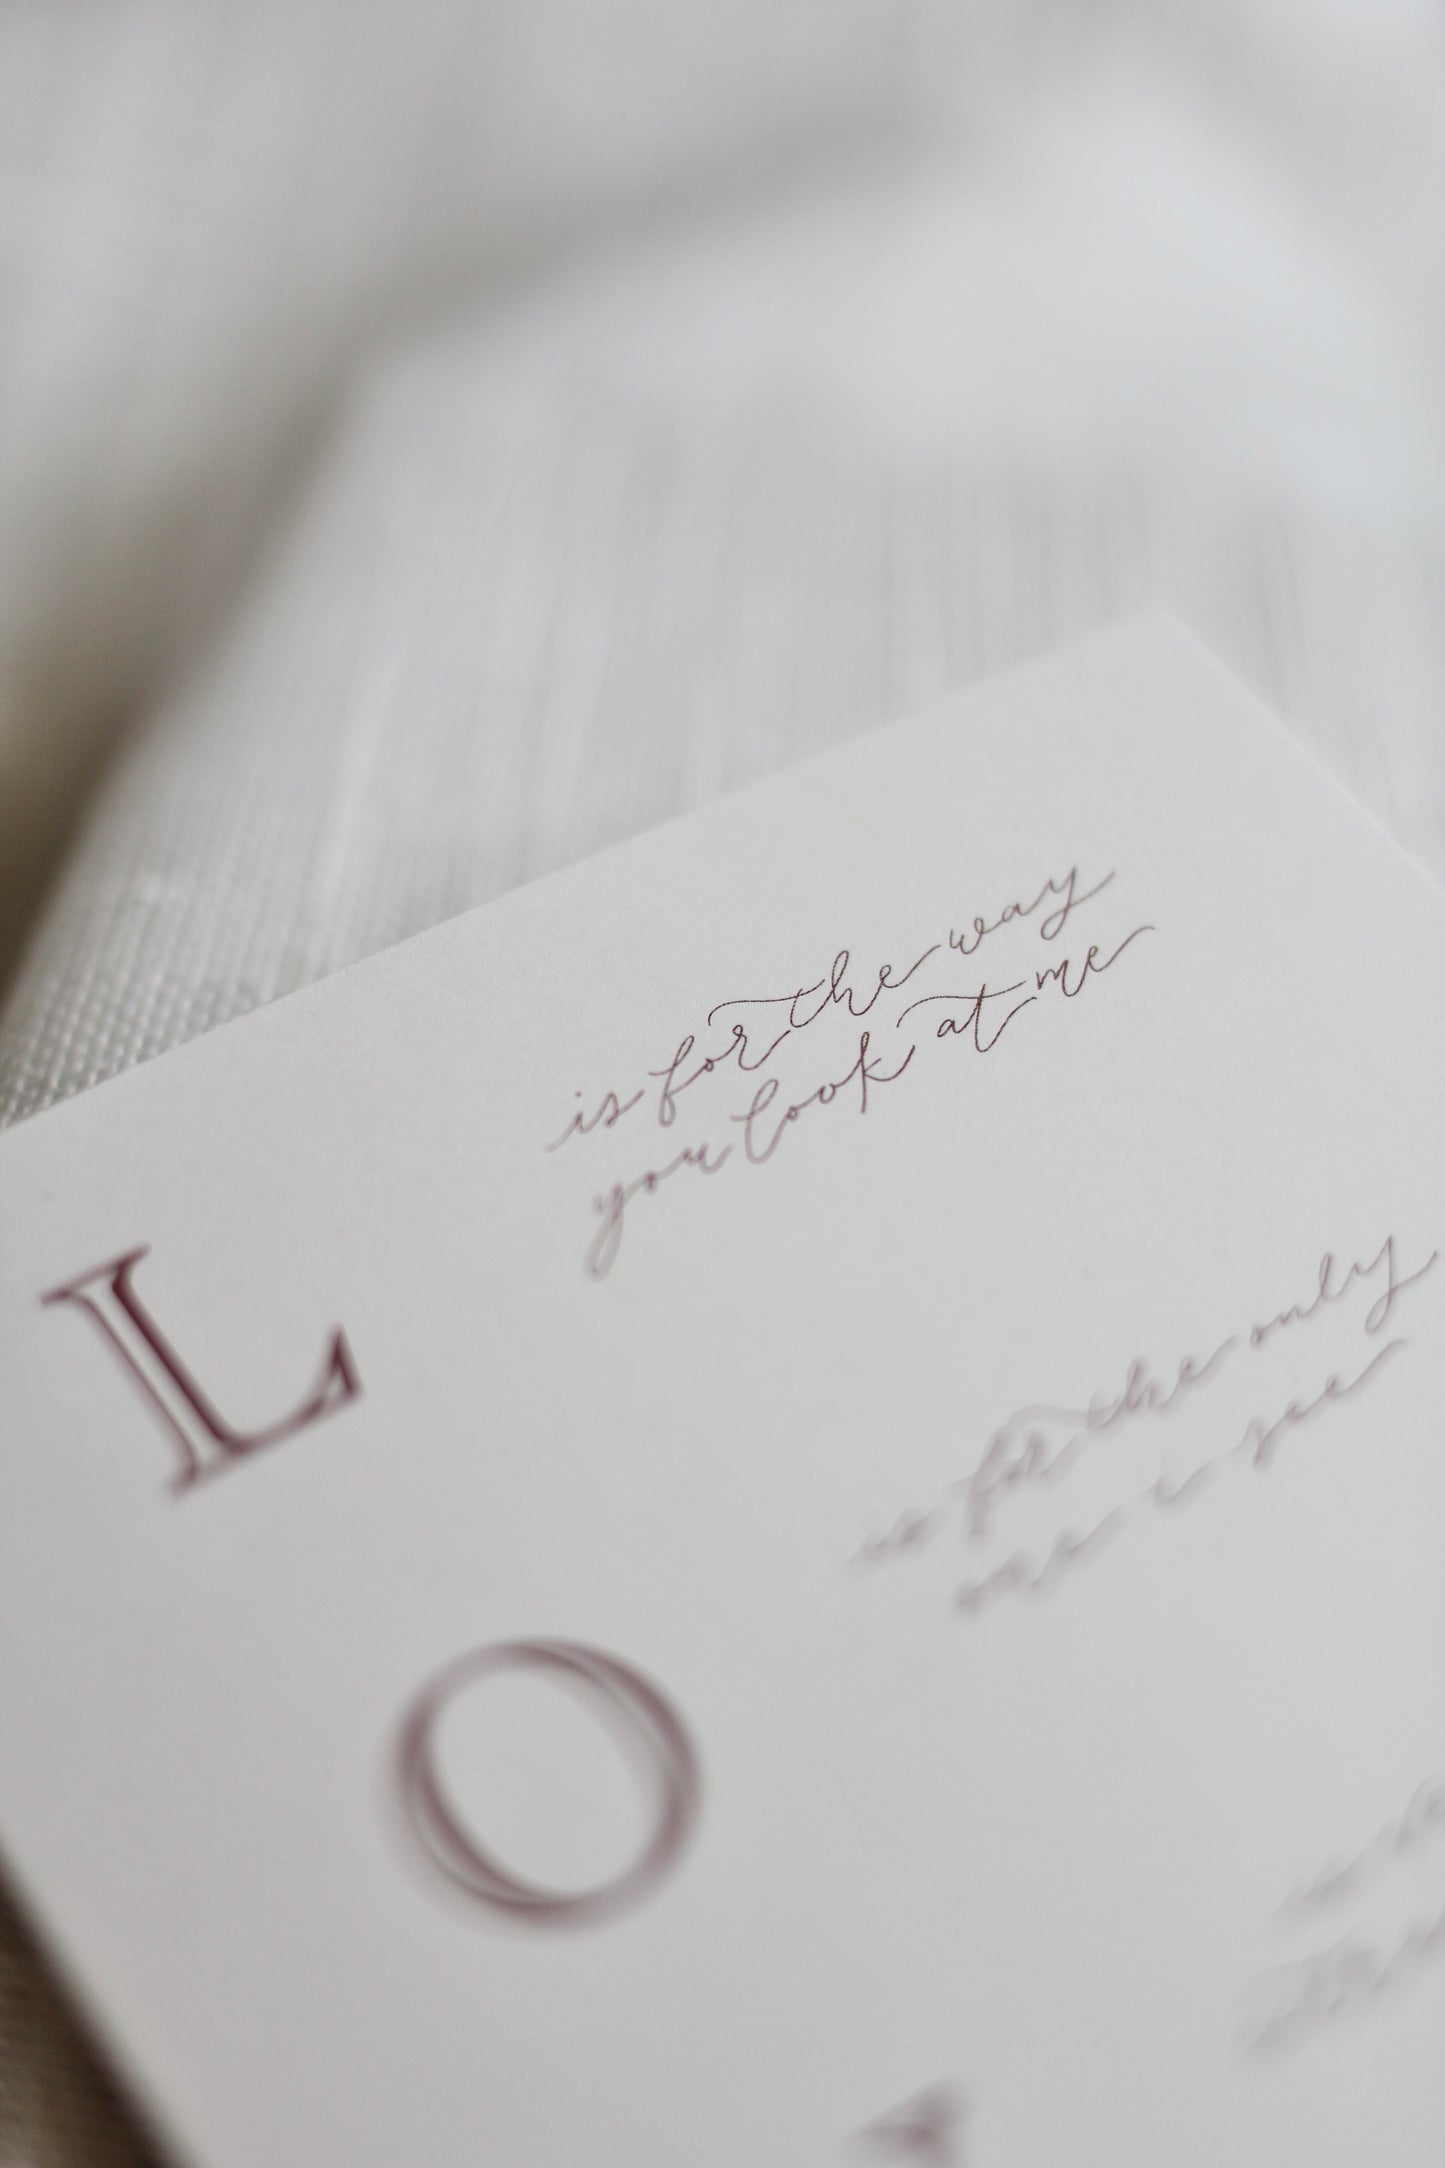 L
is for the way
you look at me
O
is for the only
one i see